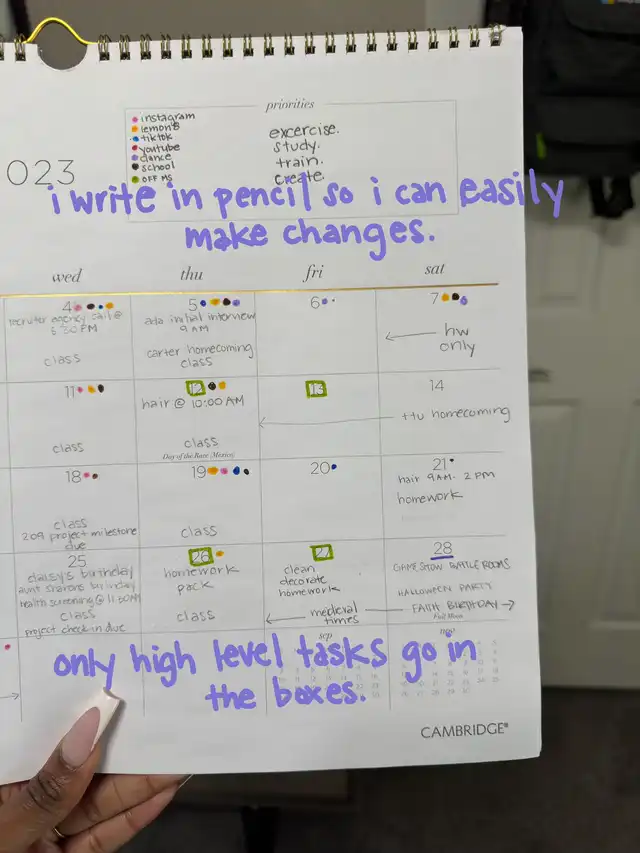 priorities
instagram
lemon8
tiktok
youtube
dance
school
OFF
excercise.
study.
train.
create.
023
i write in pencil so i can easily
make changes.
wed thu fri sat
4 5 6 7
recruiter agency call @
6:30 PM
class
ada initial interview
9 AM
carter homecoming
class
hw
only
11 12 13 14
class
hair @ 10:00 AM
class
Day of the Race (Mexico)
ttu homecoming
18 19 20 21
class
209 project milestone
due
class
hair 9AM- 2 PM
homework
25 26 27 28
daisy's birthday
aunt sharons birthday
health screening @
class
project check-in due
homework
pack
class
clean
decorate
homework
medieval
times
GAMESHOW BATTLE ROOMS
HALLOWEEN PARTY
FAITH BIRTHDAY
Full Moon
sep nov
only high level tasks go in
the boxes.
CAMBRIDGE®